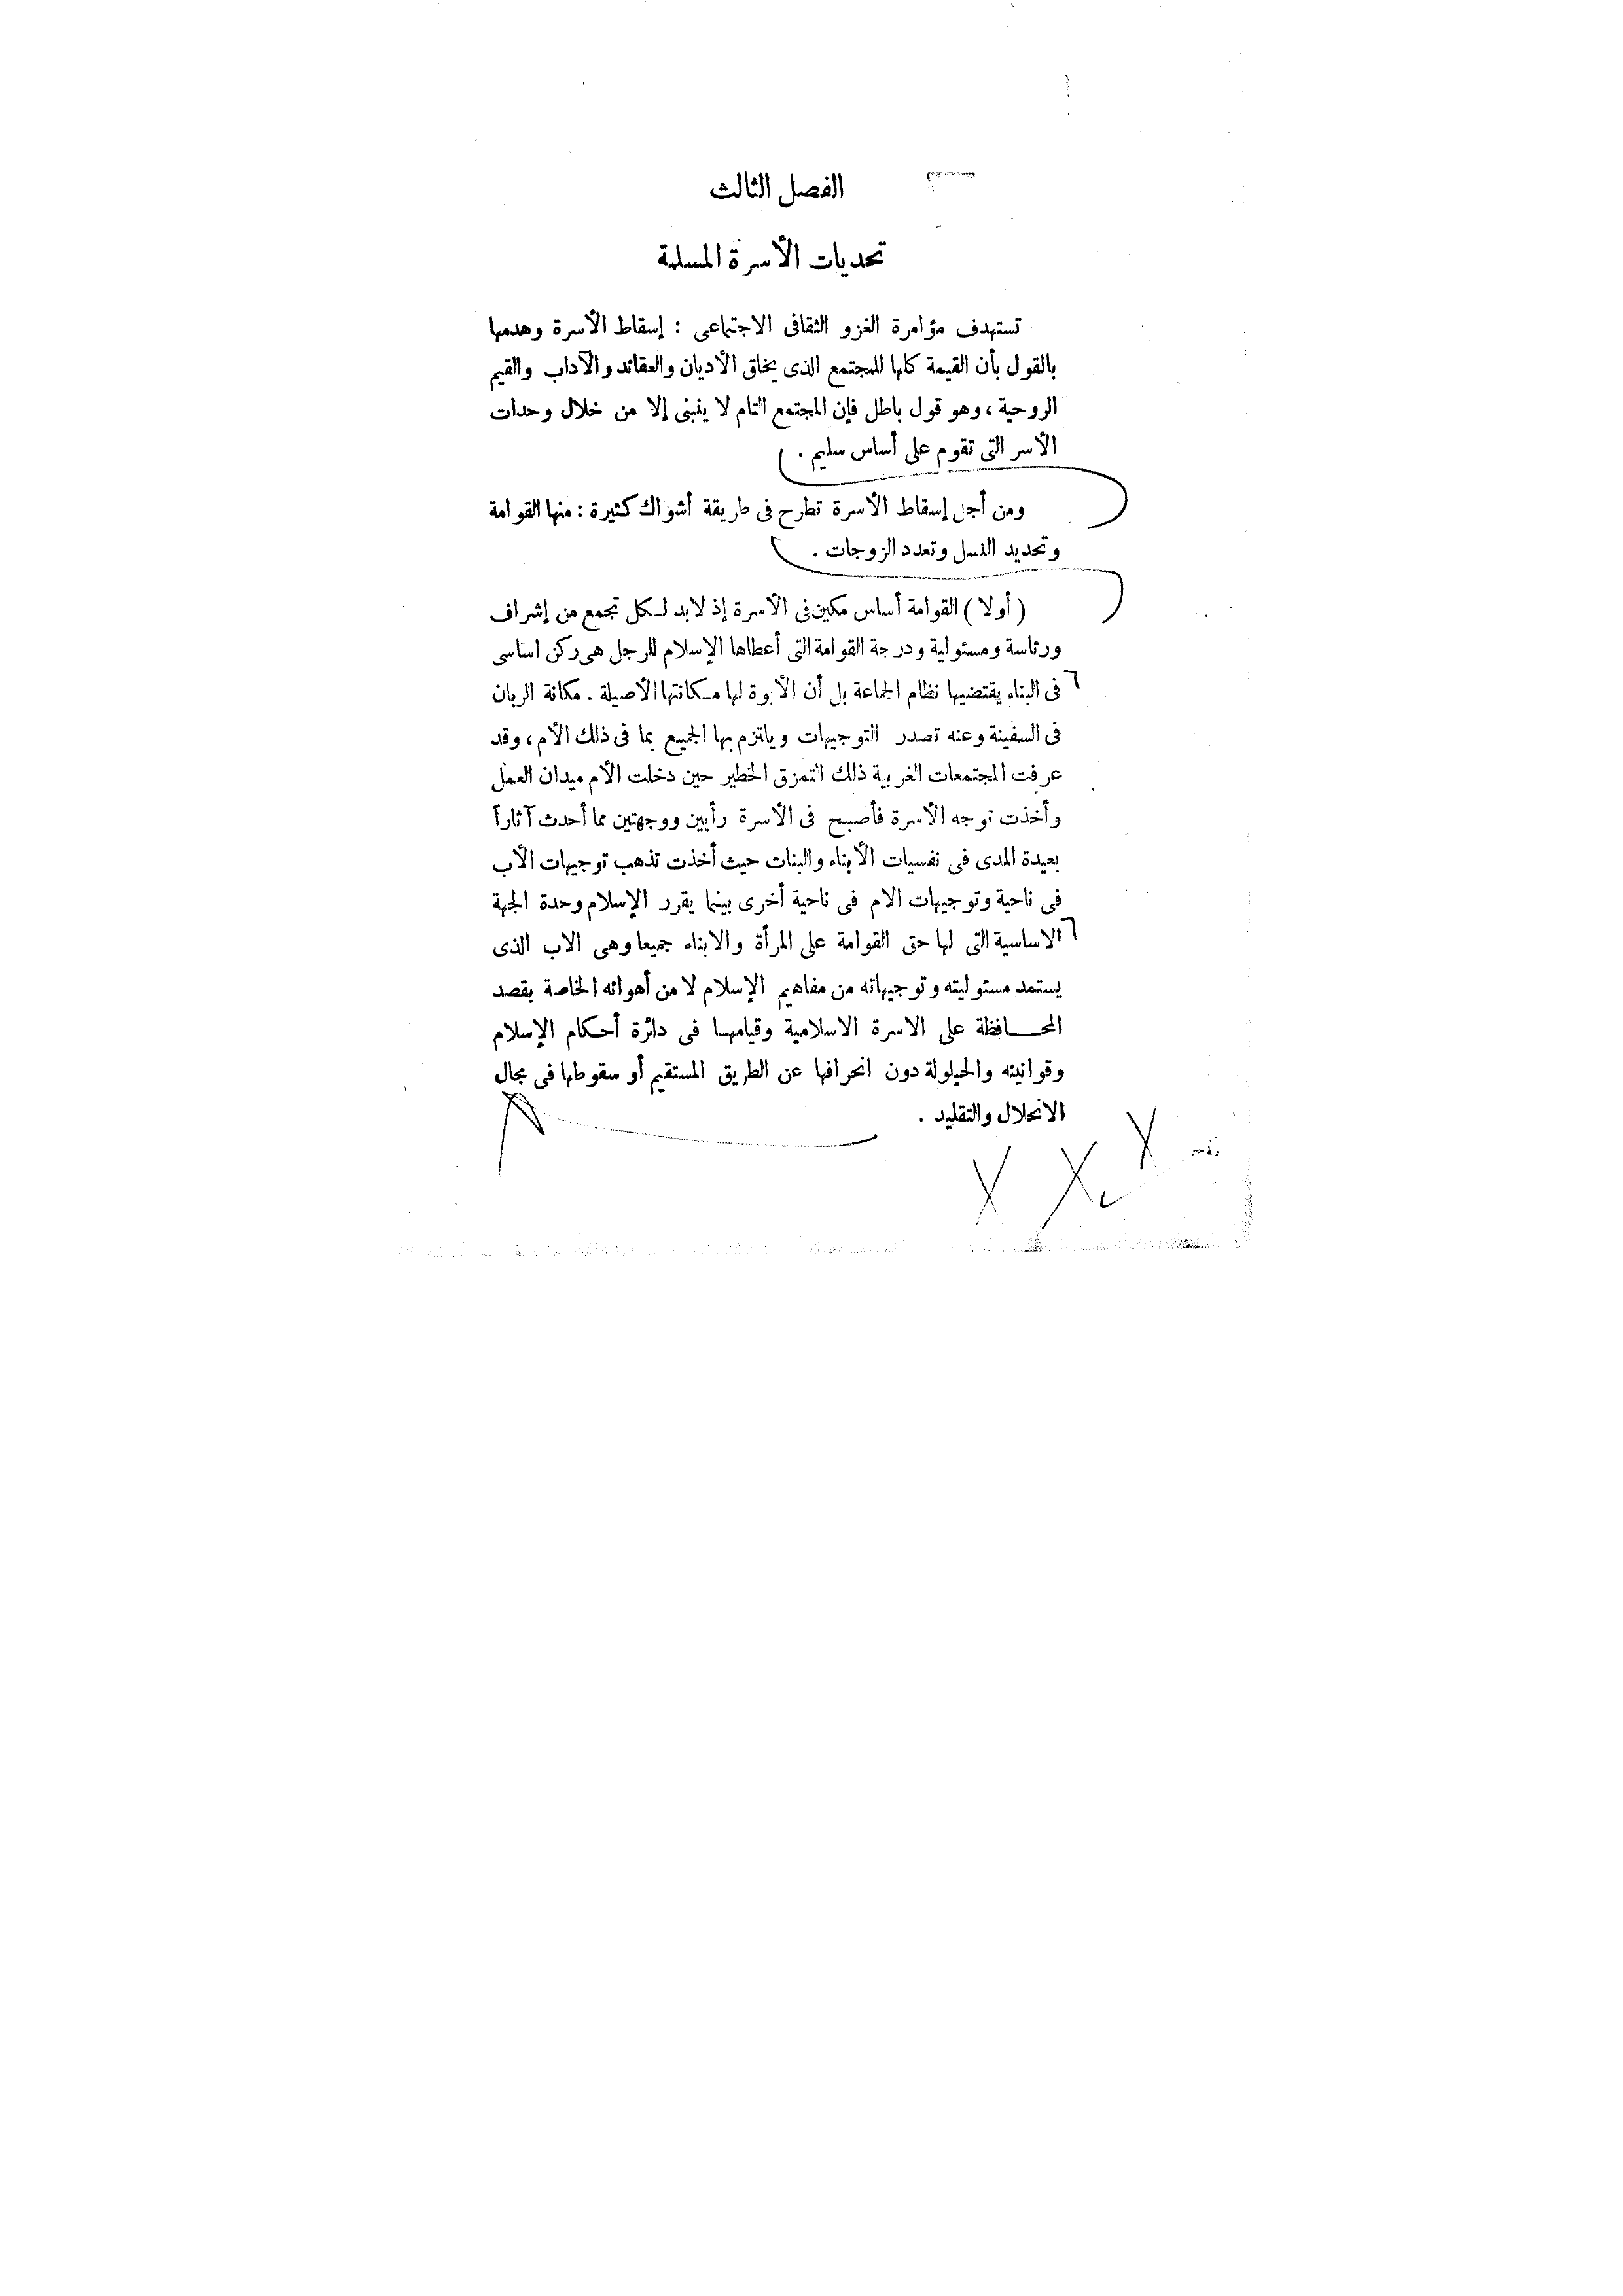 الفصل الثالث
تحديات الأسرة المسلمة
تستهدف مؤامرة الغزو الثقافى الاجتماعى : إسقاط الأسرة وهدمها
بالقول بأن القيمة كلها للمجتمع الذى يخلق الأديان والعقائد والآداب والقيم
الروحية ، وهو قول باطل فإن المجتمع التام لا ينبنى إلا من خلال وحدات
الأسر التى تقوم على أساس سليم .
ومن أجل إسقاط الأسرة تطرح فى طريقة أشواك كثيرة : منها القوامة
وتحديد النسل وتعدد الزوجات .
( أولا ) القوامة أساس مكين فى الأسرة إذ لابد لكل تجمع من إشراف
ورئاسة ومسئولية ودرجة القوامة التى أعطاها الإسلام للرجل هى ركن اساسى
فى البناء يقتضيها نظام الجماعة بل أن الأبوة لها مكانتها الأصيلة . مكانة الربان
فى السفينة وعنه تصدر التوجيهات ويلتزم بها الجميع بما فى ذلك الأم ، وقد
عرفت المجتمعات الغربية ذلك التمزق الخطير حين دخلت الأم ميدان العمل
وأخذت توجه الأسرة فأصبح فى الأسرة رأيين ووجهتين مما أحدث آثاراً
بعيدة المدى فى نفسيات الأبناء والبنات حيث أخذت تذهب توجيهات الأب
فى ناحية وتوجيهات الام فى ناحية أخرى بينما يقرر الإسلام وحدة الجهة
الاساسية التى لها حق القوامة على المرأة والابناء جميعا وهى الاب الذى
يستمد مسئوليته وتوجيهاته من مفاهيم الإسلام لا من أهوائه الخاصة بقصد
المحافظة على الاسرة الاسلامية وقيامها فى دائرة أحكام الإسلام
وقوانينه والحيلولة دون انحرافها عن الطريق المستقيم أو سقوطها فى مجال
الانحلال والتقليد .